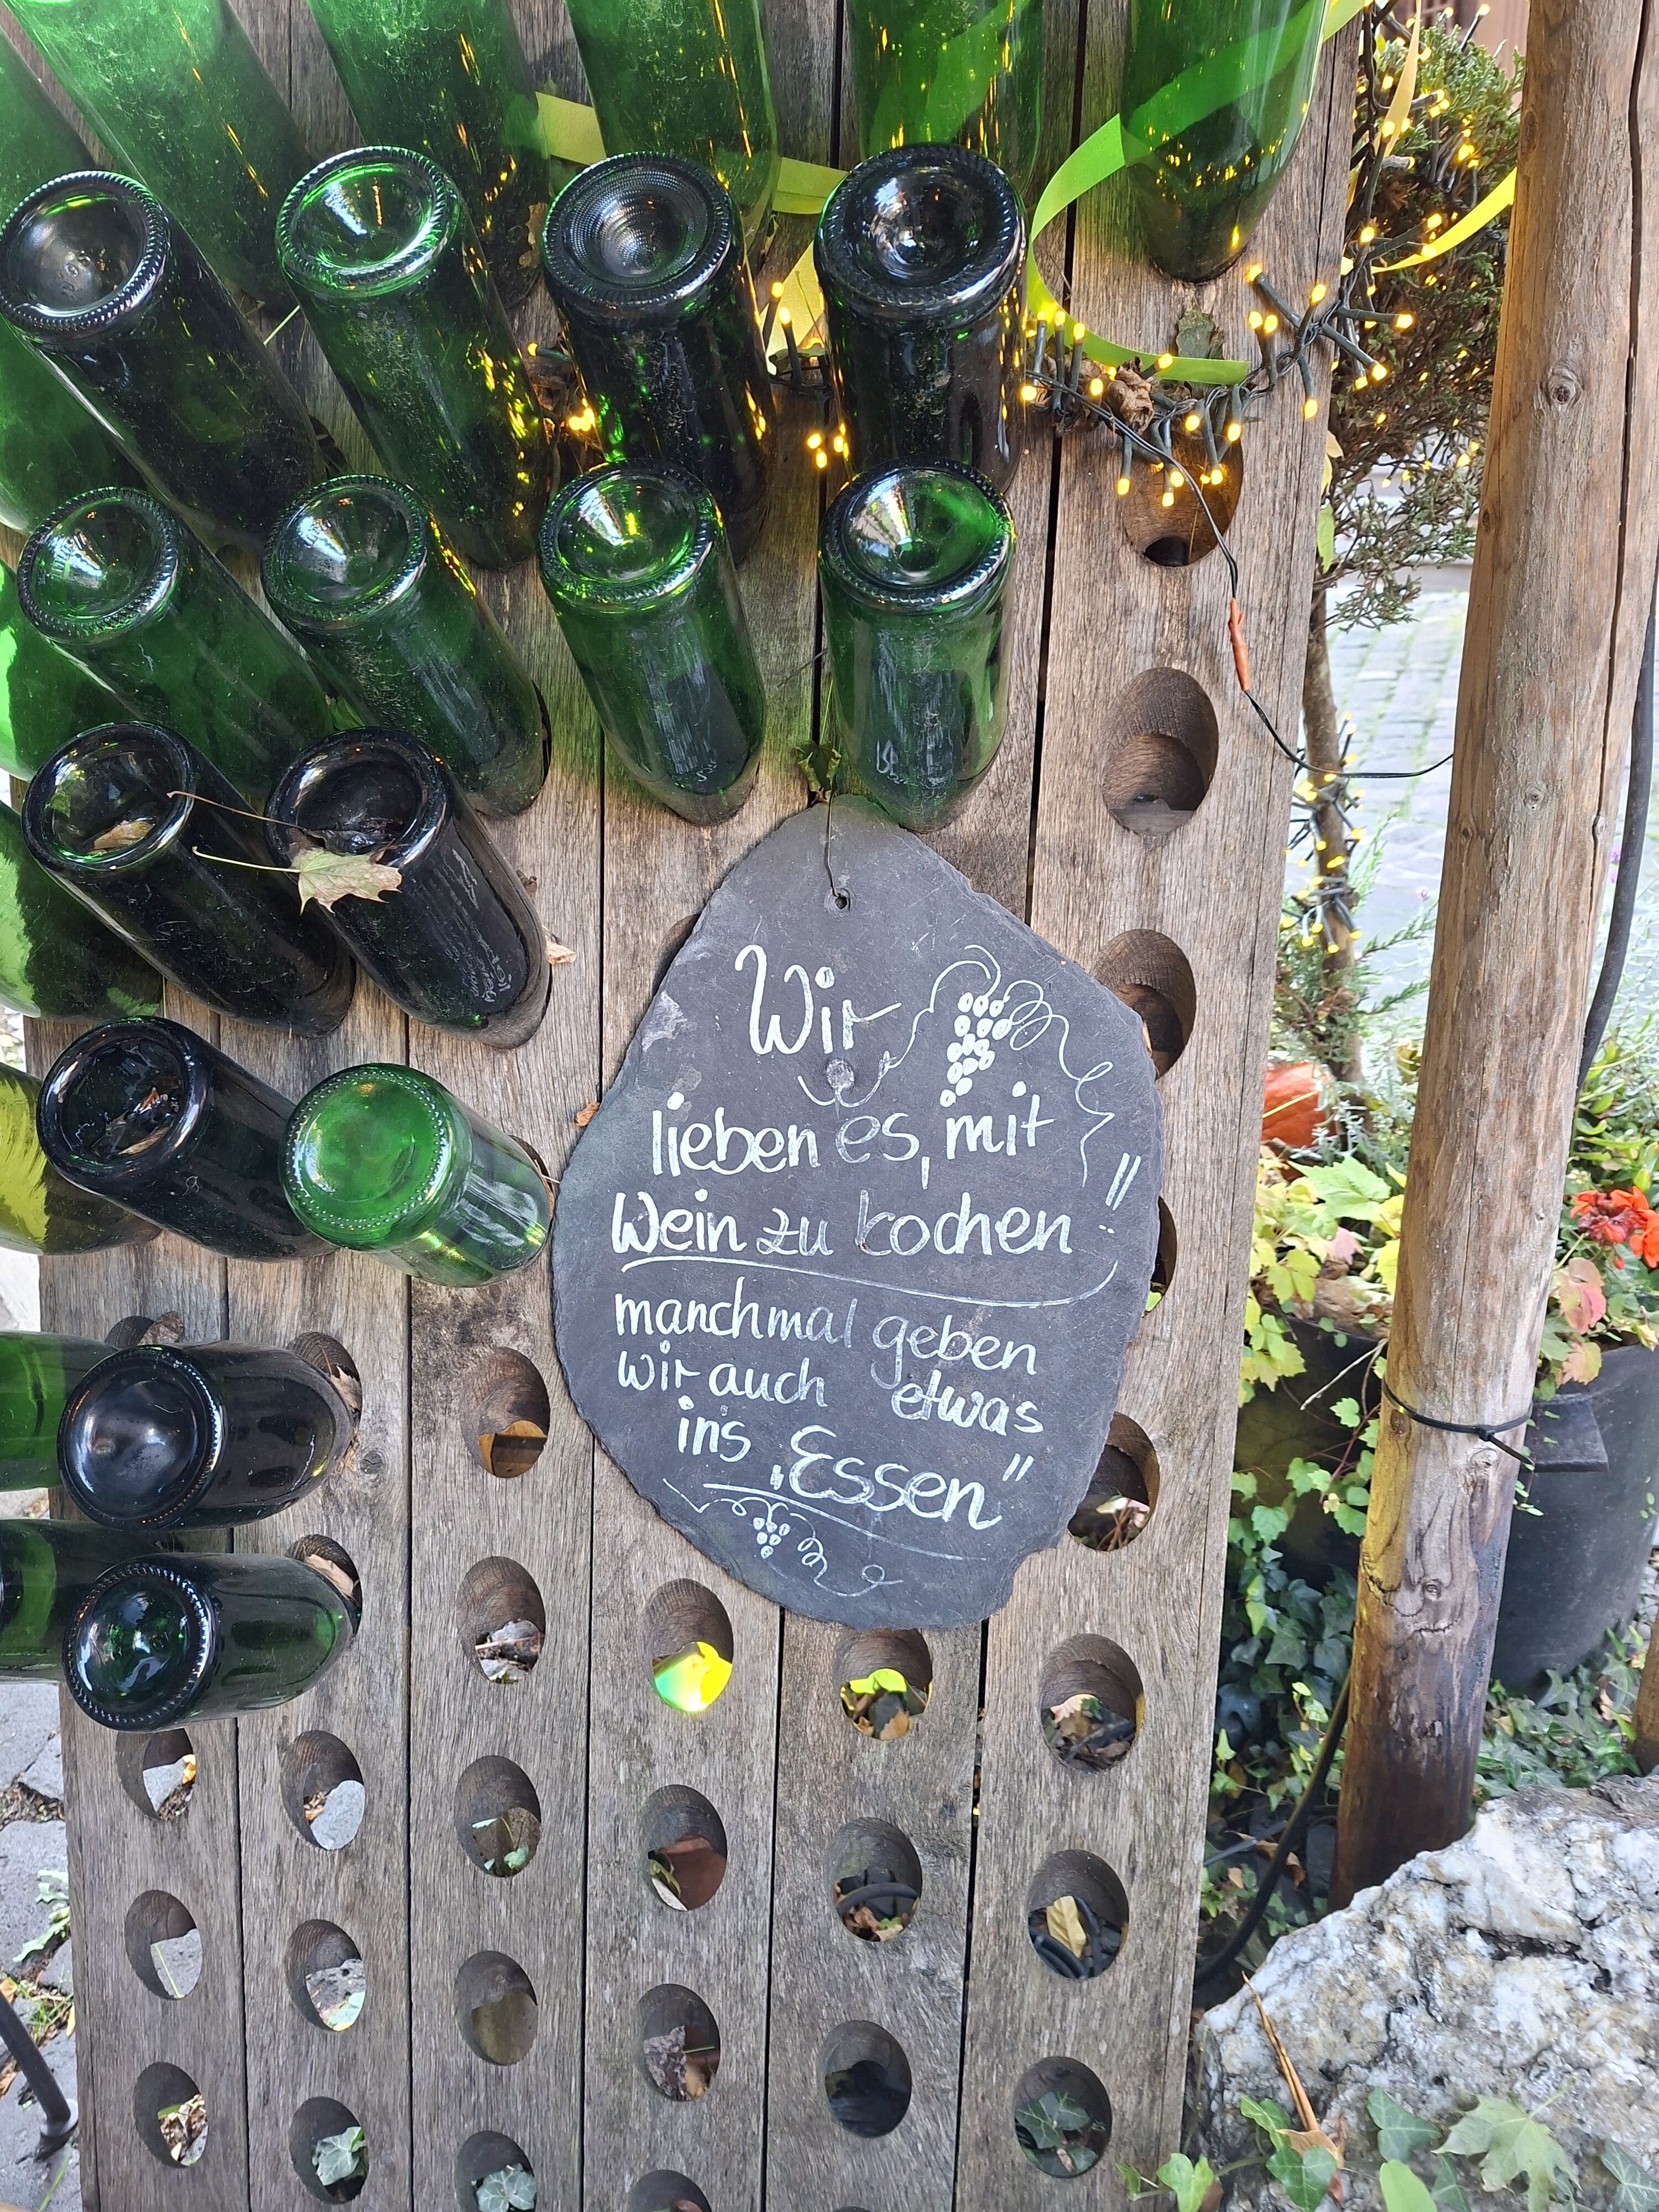 Wir
lieben es, mit
Wein zu kochen!!
manchmal geben
wir auch etwas
ins „Essen“